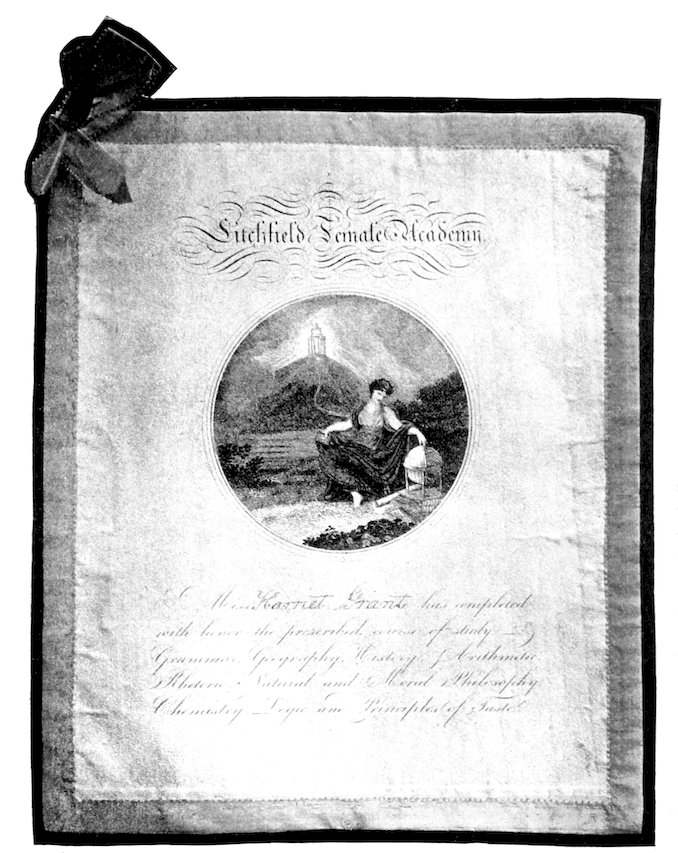 Litchfield Female Academy.
Miss Harriet Grant has completed
with honor the prescribed course of study
Grammar Geography, History, Arithmetic
Rhetoric, Natural and Moral Philosophy
Chemistry Logic and Principles of Taste.